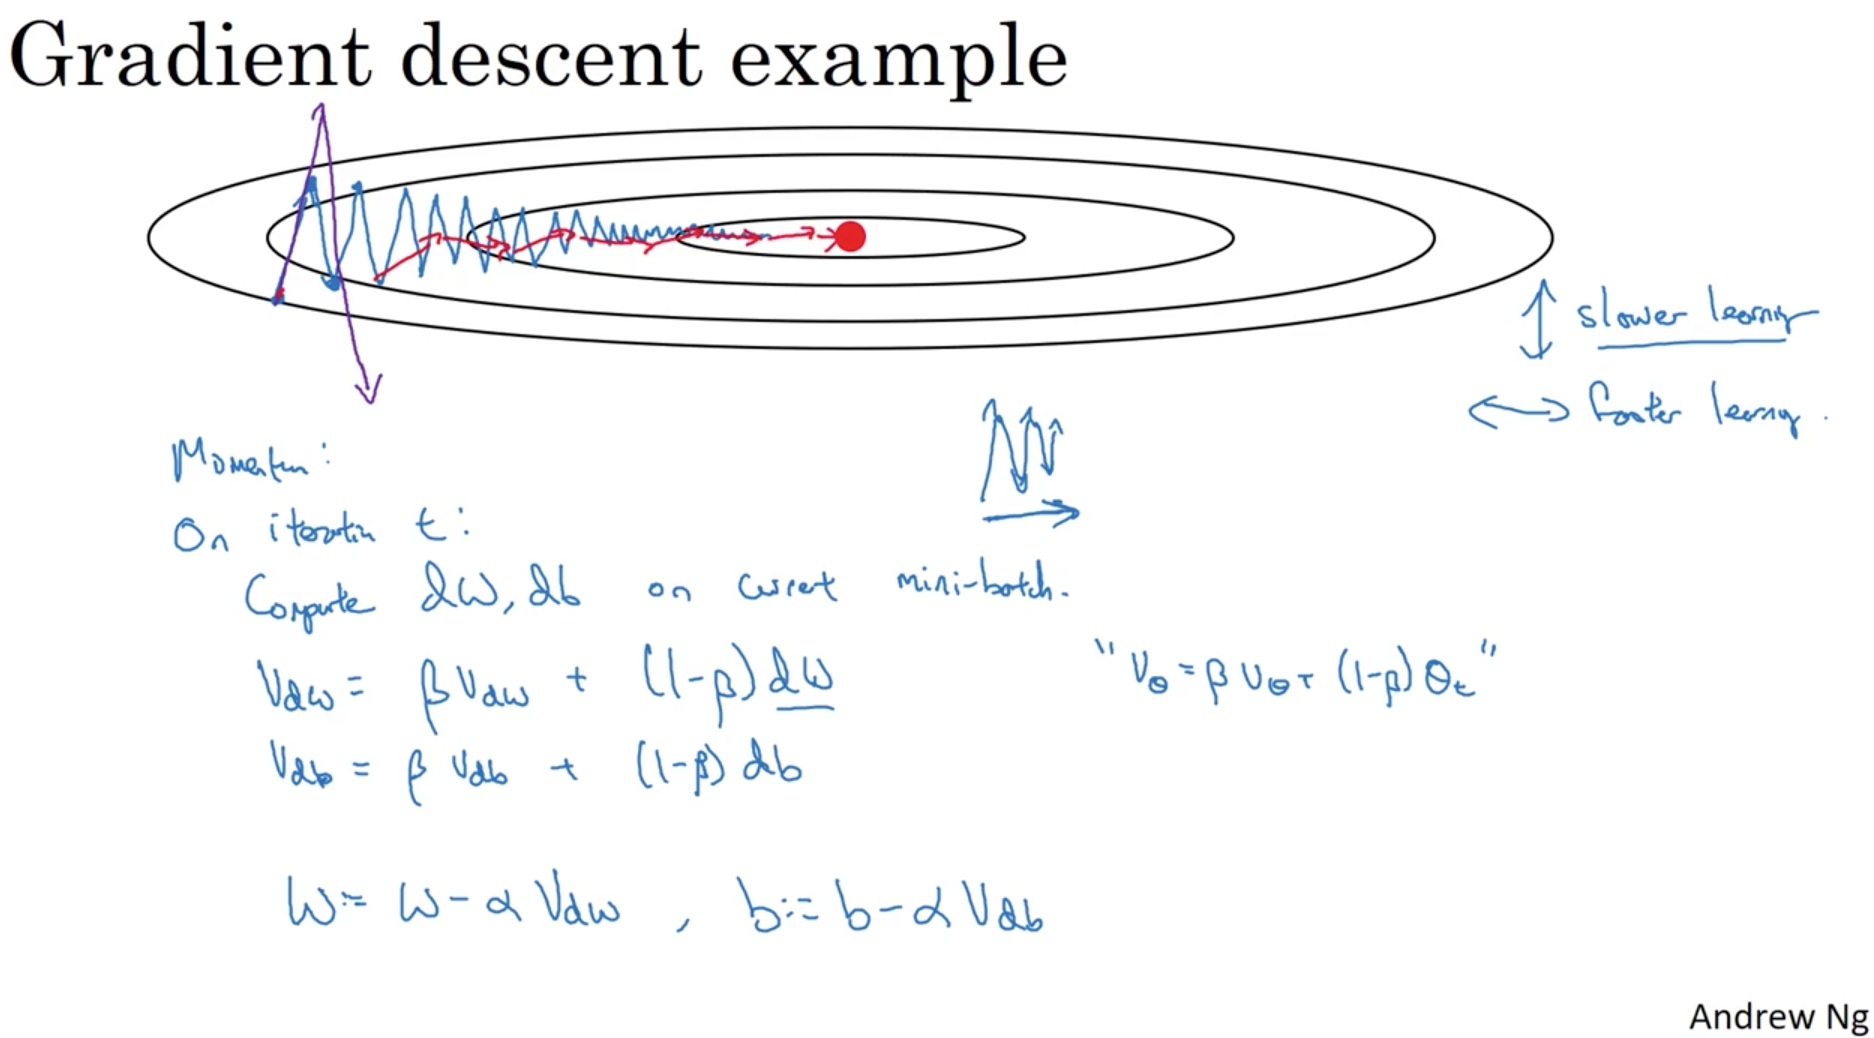 Gradient descent example
↕ slower learning
↔ faster learning.
Momentum:
On iteration t:
Compute dW, db on current mini-batch.
Vdw = βVdw + (1-β)dW
"Vθ = βVθ + (1-β)θt"
Vdb = βVdb + (1-β)db
W := W - αVdw, b := b - αVdb
Andrew Ng